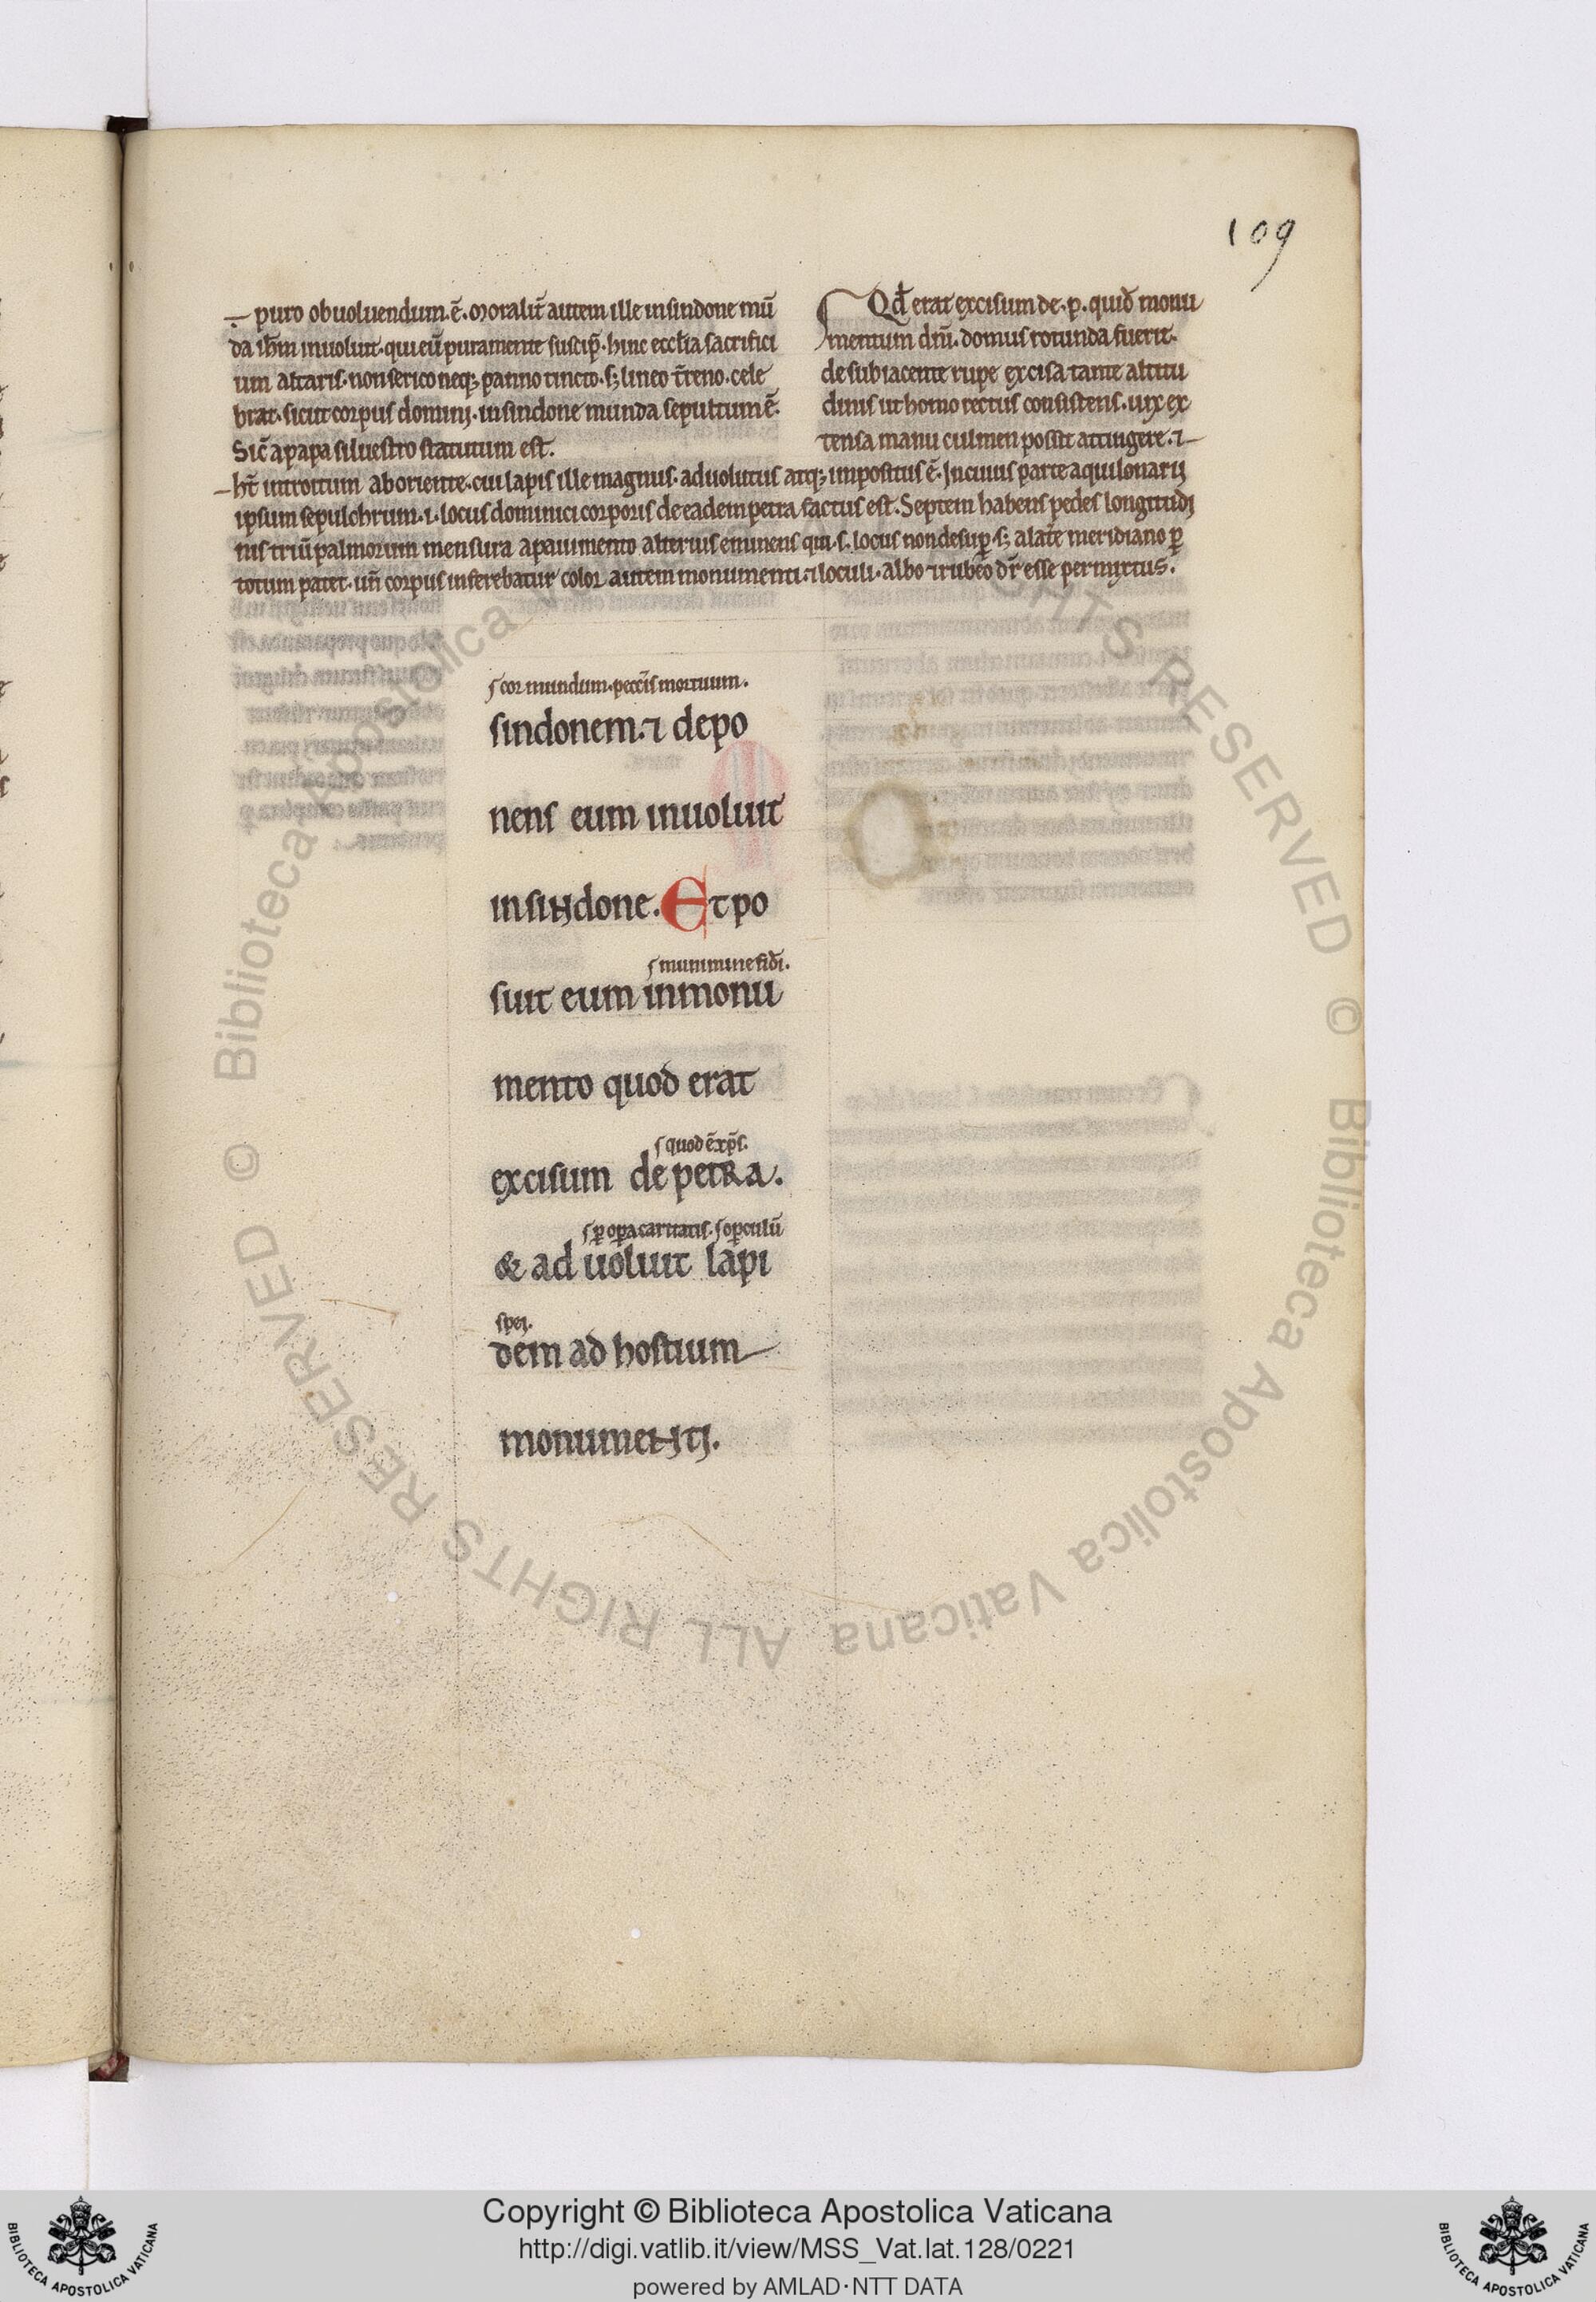 109
puro obuoluendum. ē. Moralit̄ autem ille in sindone mū
da ih̄m inuoluit. qui eū puramente suscip̄. hinc eccl̄ia sacrifici
um altaris. non serico neq; panno tincto. s; lineo t̄reno. cele
brat. sicut corpus dominj. in sindone munda sepultum ē.
Sic̄ a papa siluestro statutum est.
Qd̄ erat excisum de. p. quid monu
mentum dn̄i. domus rotunda fuerit.
de subiacente rupe excisa tante altitu
dinis ut homo rectus consistens. uix ex
tensa manu culmen possit attingere. ⁊
ht̄ introitum ab oriente. cui lapis ille magnus. aduolutus atq; impositus ē. In cuius parte aquilonarij
ipsum sepulchrum .i. locus dominici corporis de eadem petra factus est. Septem habens pedes longitudj
nis triū palmorum mensura a pauimento alterius eminens qui .s. locus non desup̄ s; a lat̄e meridiano p̄
totum patet. un̄ corpus inferebatur color autem monumenti. ⁊ loculi. albo ⁊ rubeo dr̄ esse permixtus.
s cor mundum. pecc̄is mortuum.
sindonem. ⁊ depo
nens eum inuoluit
in sindone. Et po
s munimine fidī.
suit eum in monu
mento quod erat
s quod ē xp̄s.
excisum de petra.
s p̄ op̄a caritatis. s op̄culū
& ad uoluit lapi
spej.
dem ad hostium
monumentj.
© Biblioteca Apostolica Vaticana ALL RIGHTS RESERVED
© Biblioteca Apostolica Vaticana ALL RIGHTS RESERVED
Copyright © Biblioteca Apostolica Vaticana
http://digi.vatlib.it/view/MSS_Vat.lat.128/0221
powered by AMLAD·NTT DATA
BIBLIOTECA APOSTOLICA VATICANA
BIBLIOTECA APOSTOLICA VATICANA